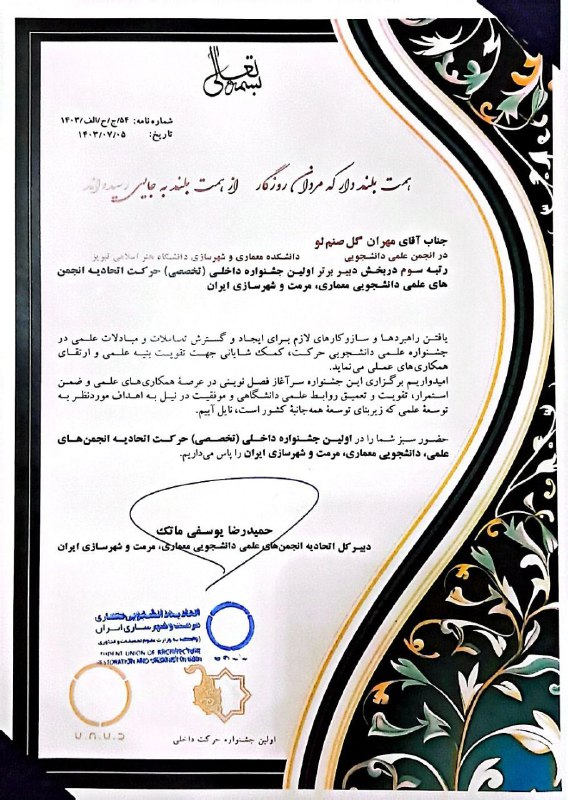 بسمه تعالی
شماره نامه: ۵۴/ج/ح/الف/۱۴۰۳
تاریخ: ۱۴۰۳/۰۷/۰۵
همت بلند دار که مردان روزگار از همت بلند به جایی رسیده‌اند
جناب آقای مهران گل صنم لو
در انجمن علمی دانشجویی دانشکده معماری و شهرسازی دانشگاه هنر اسلامی تبریز
رتبه سوم دربخش دبیر برتر اولین جشنواره داخلی (تخصصی) حرکت اتحادیه انجمن
های علمی دانشجویی معماری، مرمت و شهرسازی ایران
یافتن راهبردها و سازوکارهای لازم برای ایجاد و گسترش تعاملات و مبادلات علمی در
جشنواره علمی دانشجویی حرکت، کمک شایانی جهت تقویت بنیه علمی و ارتقای
همکاری‌های عملی می‌نماید.
امیدواریم برگزاری این جشنواره سرآغاز فصل نوینی در عرصهٔ همکاری‌های علمی و ضمن
استمرار، تقویت و تعمیق روابط علمی دانشگاهی و موفقیت در نیل به اهداف موردنظر به
توسعهٔ علمی که زیربنای توسعهٔ همه‌جانبهٔ کشور است، نایل آییم.
حضور سبز شما را در اولین جشنواره داخلی (تخصصی) حرکت اتحادیه انجمن‌های
علمی، دانشجویی معماری، مرمت و شهرسازی ایران را پاس می‌داریم.
حمیدرضا یوسفی ماتک
دبیر کل اتحادیه انجمن‌های علمی دانشجویی معماری، مرمت و شهرسازی ایران
اتحادیه دانشجویی معماری
مرمت و شهرسازی ایران
(وابسته به وزارت علوم تحقیقات و فناوری)
UNION OF ARCHITECTURE
RESTORATION AND
اولین جشنواره حرکت داخلی